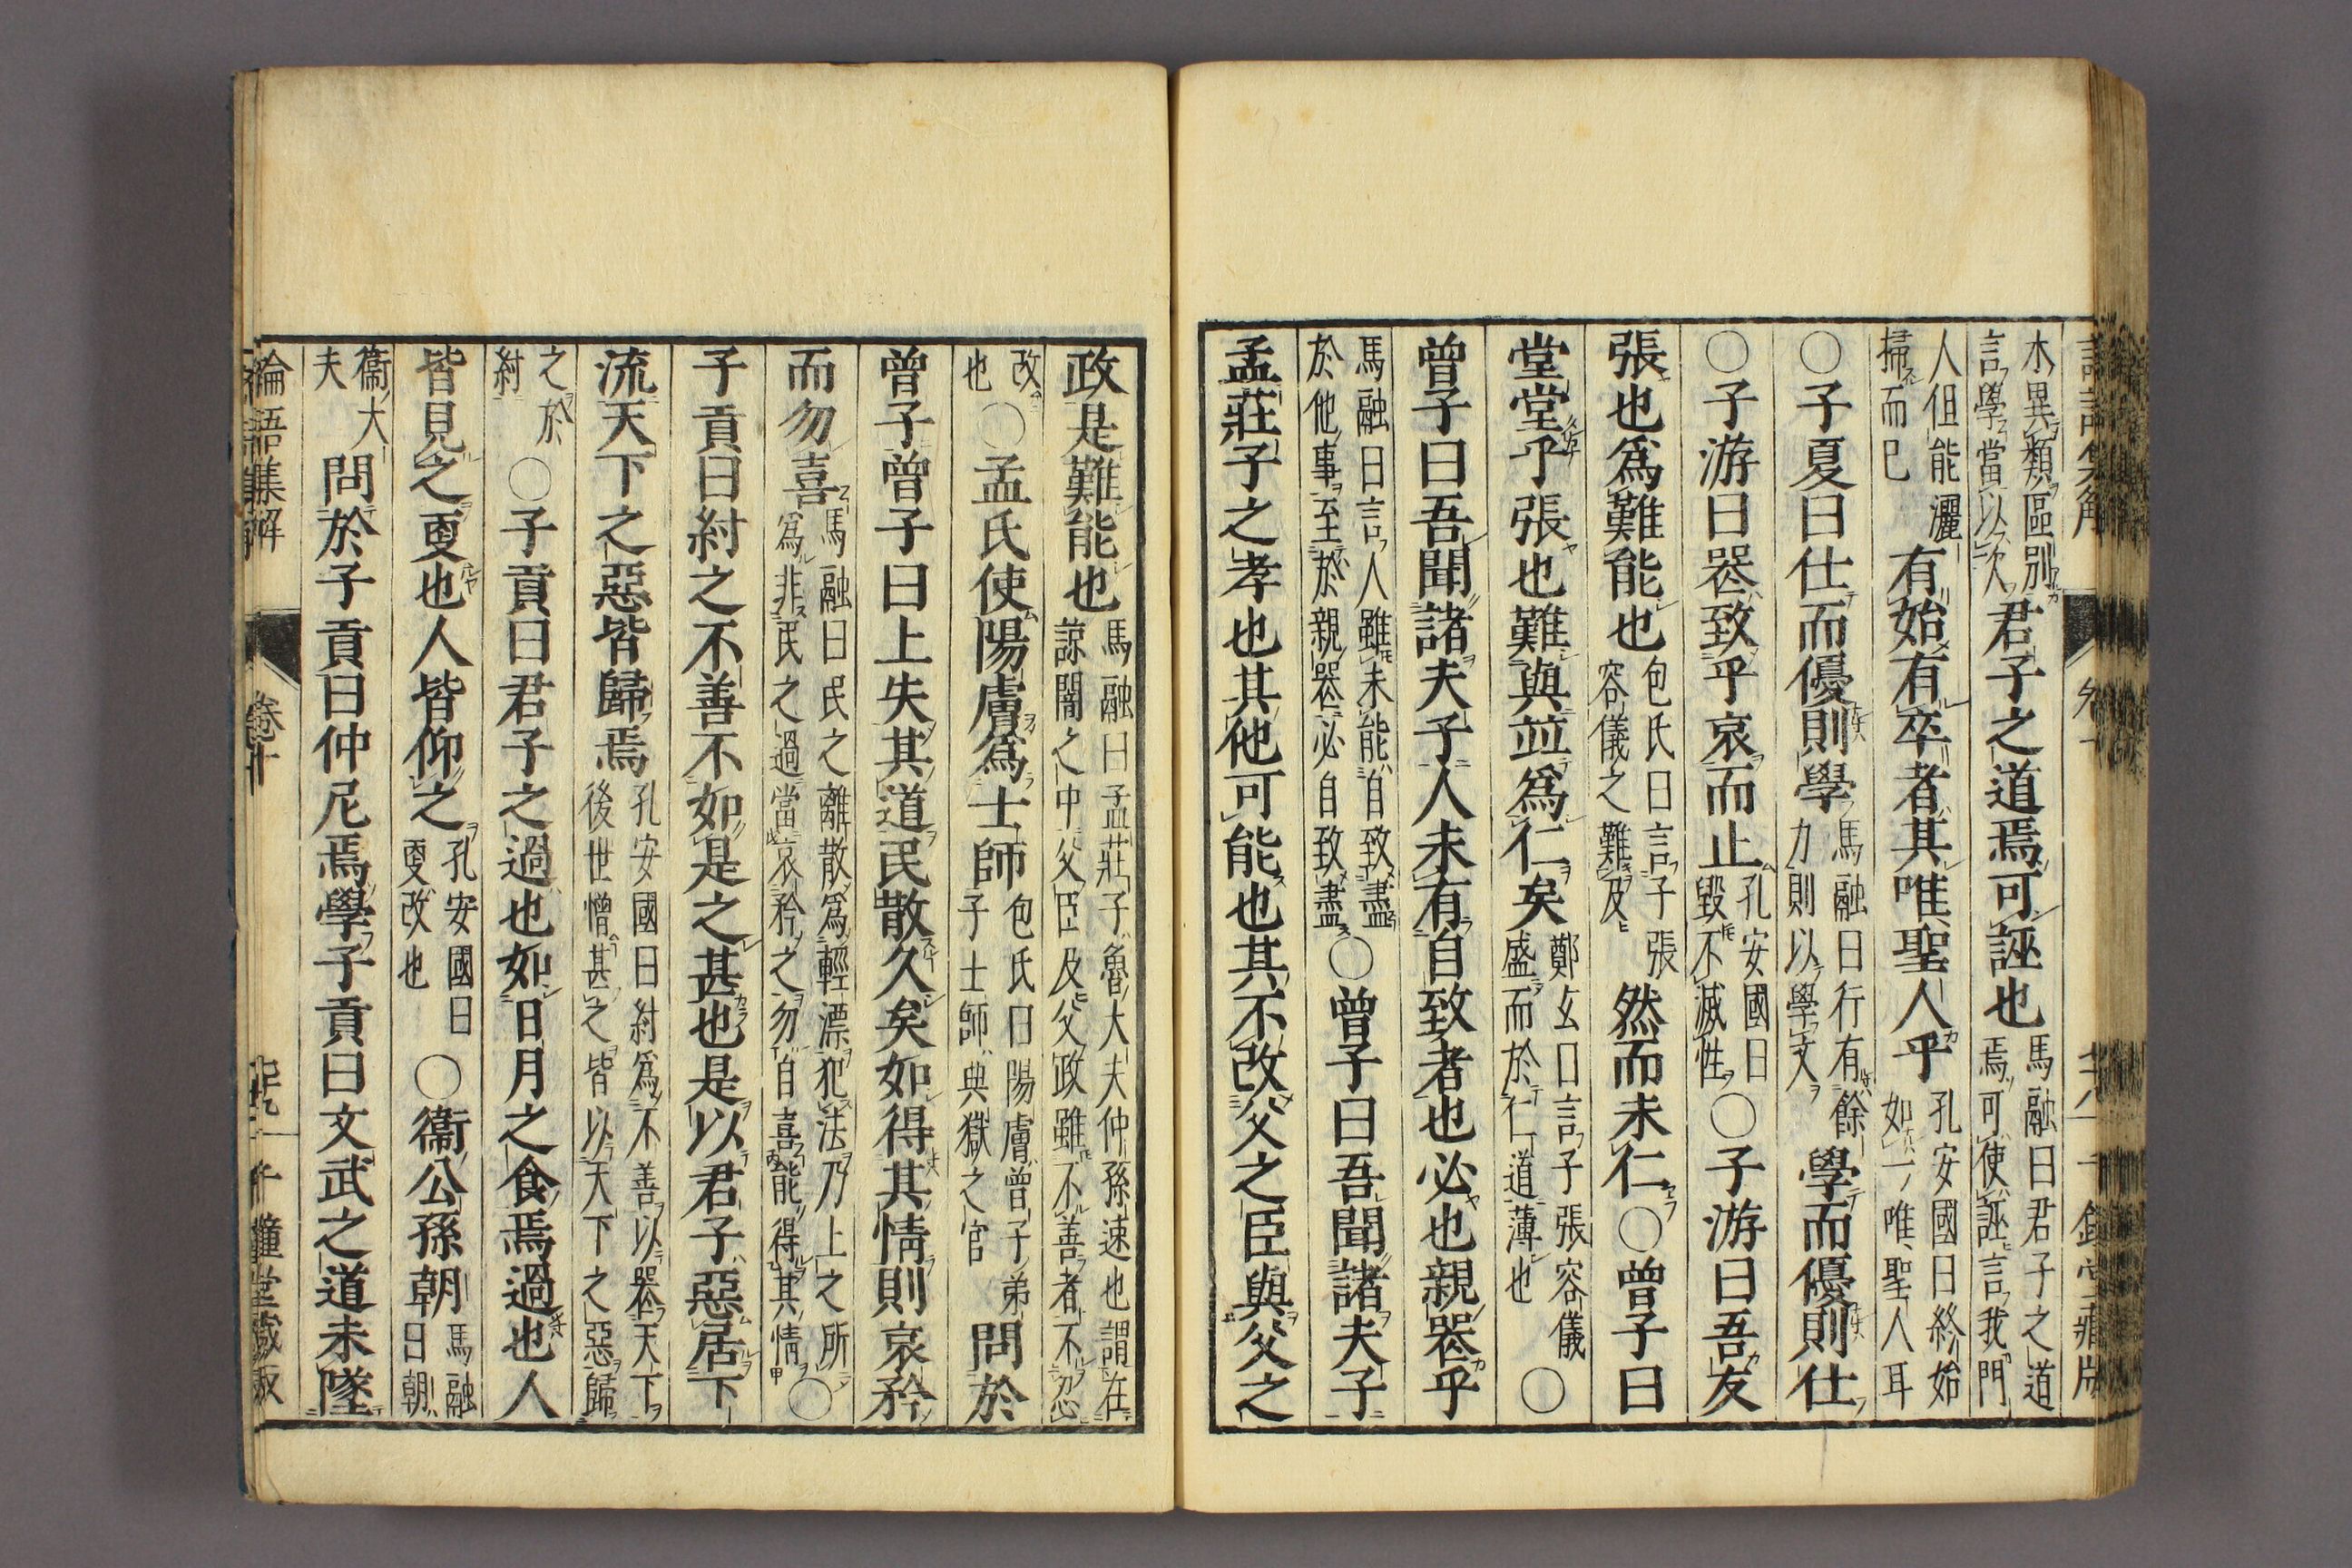 木異類區別
言學當以次
君子之道焉可誣也
馬融曰君子之道
焉可使誣言我門
人但能灑
掃而已
有始有卒者其唯聖人乎
孔安國曰終始
如一唯聖人耳
○子夏曰仕而優則學
馬融曰行有餘
力則以學文
學而優則仕
○子游曰喪致乎哀而止
孔安國曰
毀不滅性
○子游曰吾友
張也爲難能也
包氏曰言子張
容儀之難及
然而未仁○曾子曰
堂堂乎張也難與並爲仁矣
鄭玄曰言子張容儀
盛而於仁道薄也
○
曾子曰吾聞諸夫子人未有自致者也必也親喪乎
馬融曰言人雖未能自致盡
於他事至於親喪必自致盡
○曾子曰吾聞諸夫子
孟莊子之孝也其他可能也其不改父之臣與父之
政是難能也
馬融曰孟莊子魯大夫仲孫速也謂在
諒闇之中父臣及父政雖不善者不忍
改
也
○孟氏使陽膚爲士師
包氏曰陽膚曾子弟
子士師典獄之官
問於
曾子曾子曰上失其道民散久矣如得其情則哀矜
而勿喜
馬融曰民之離散爲輕漂犯法乃上之所
爲非民之過當哀矜之勿自喜能得其情
○
子貢曰紂之不善不如是之甚也是以君子惡居下
流天下之惡皆歸焉
孔安國曰紂爲不善以喪天下
後世憎甚之皆以天下之惡歸
之於
紂
○子貢曰君子之過也如日月之食焉過也人
皆見之更也人皆仰之
孔安國曰
更改也
○衞公孫朝
馬融
曰朝
衞大
夫
問於子貢曰仲尼焉學子貢曰文武之道未墜
論語集解 卷十 千鐘堂藏版